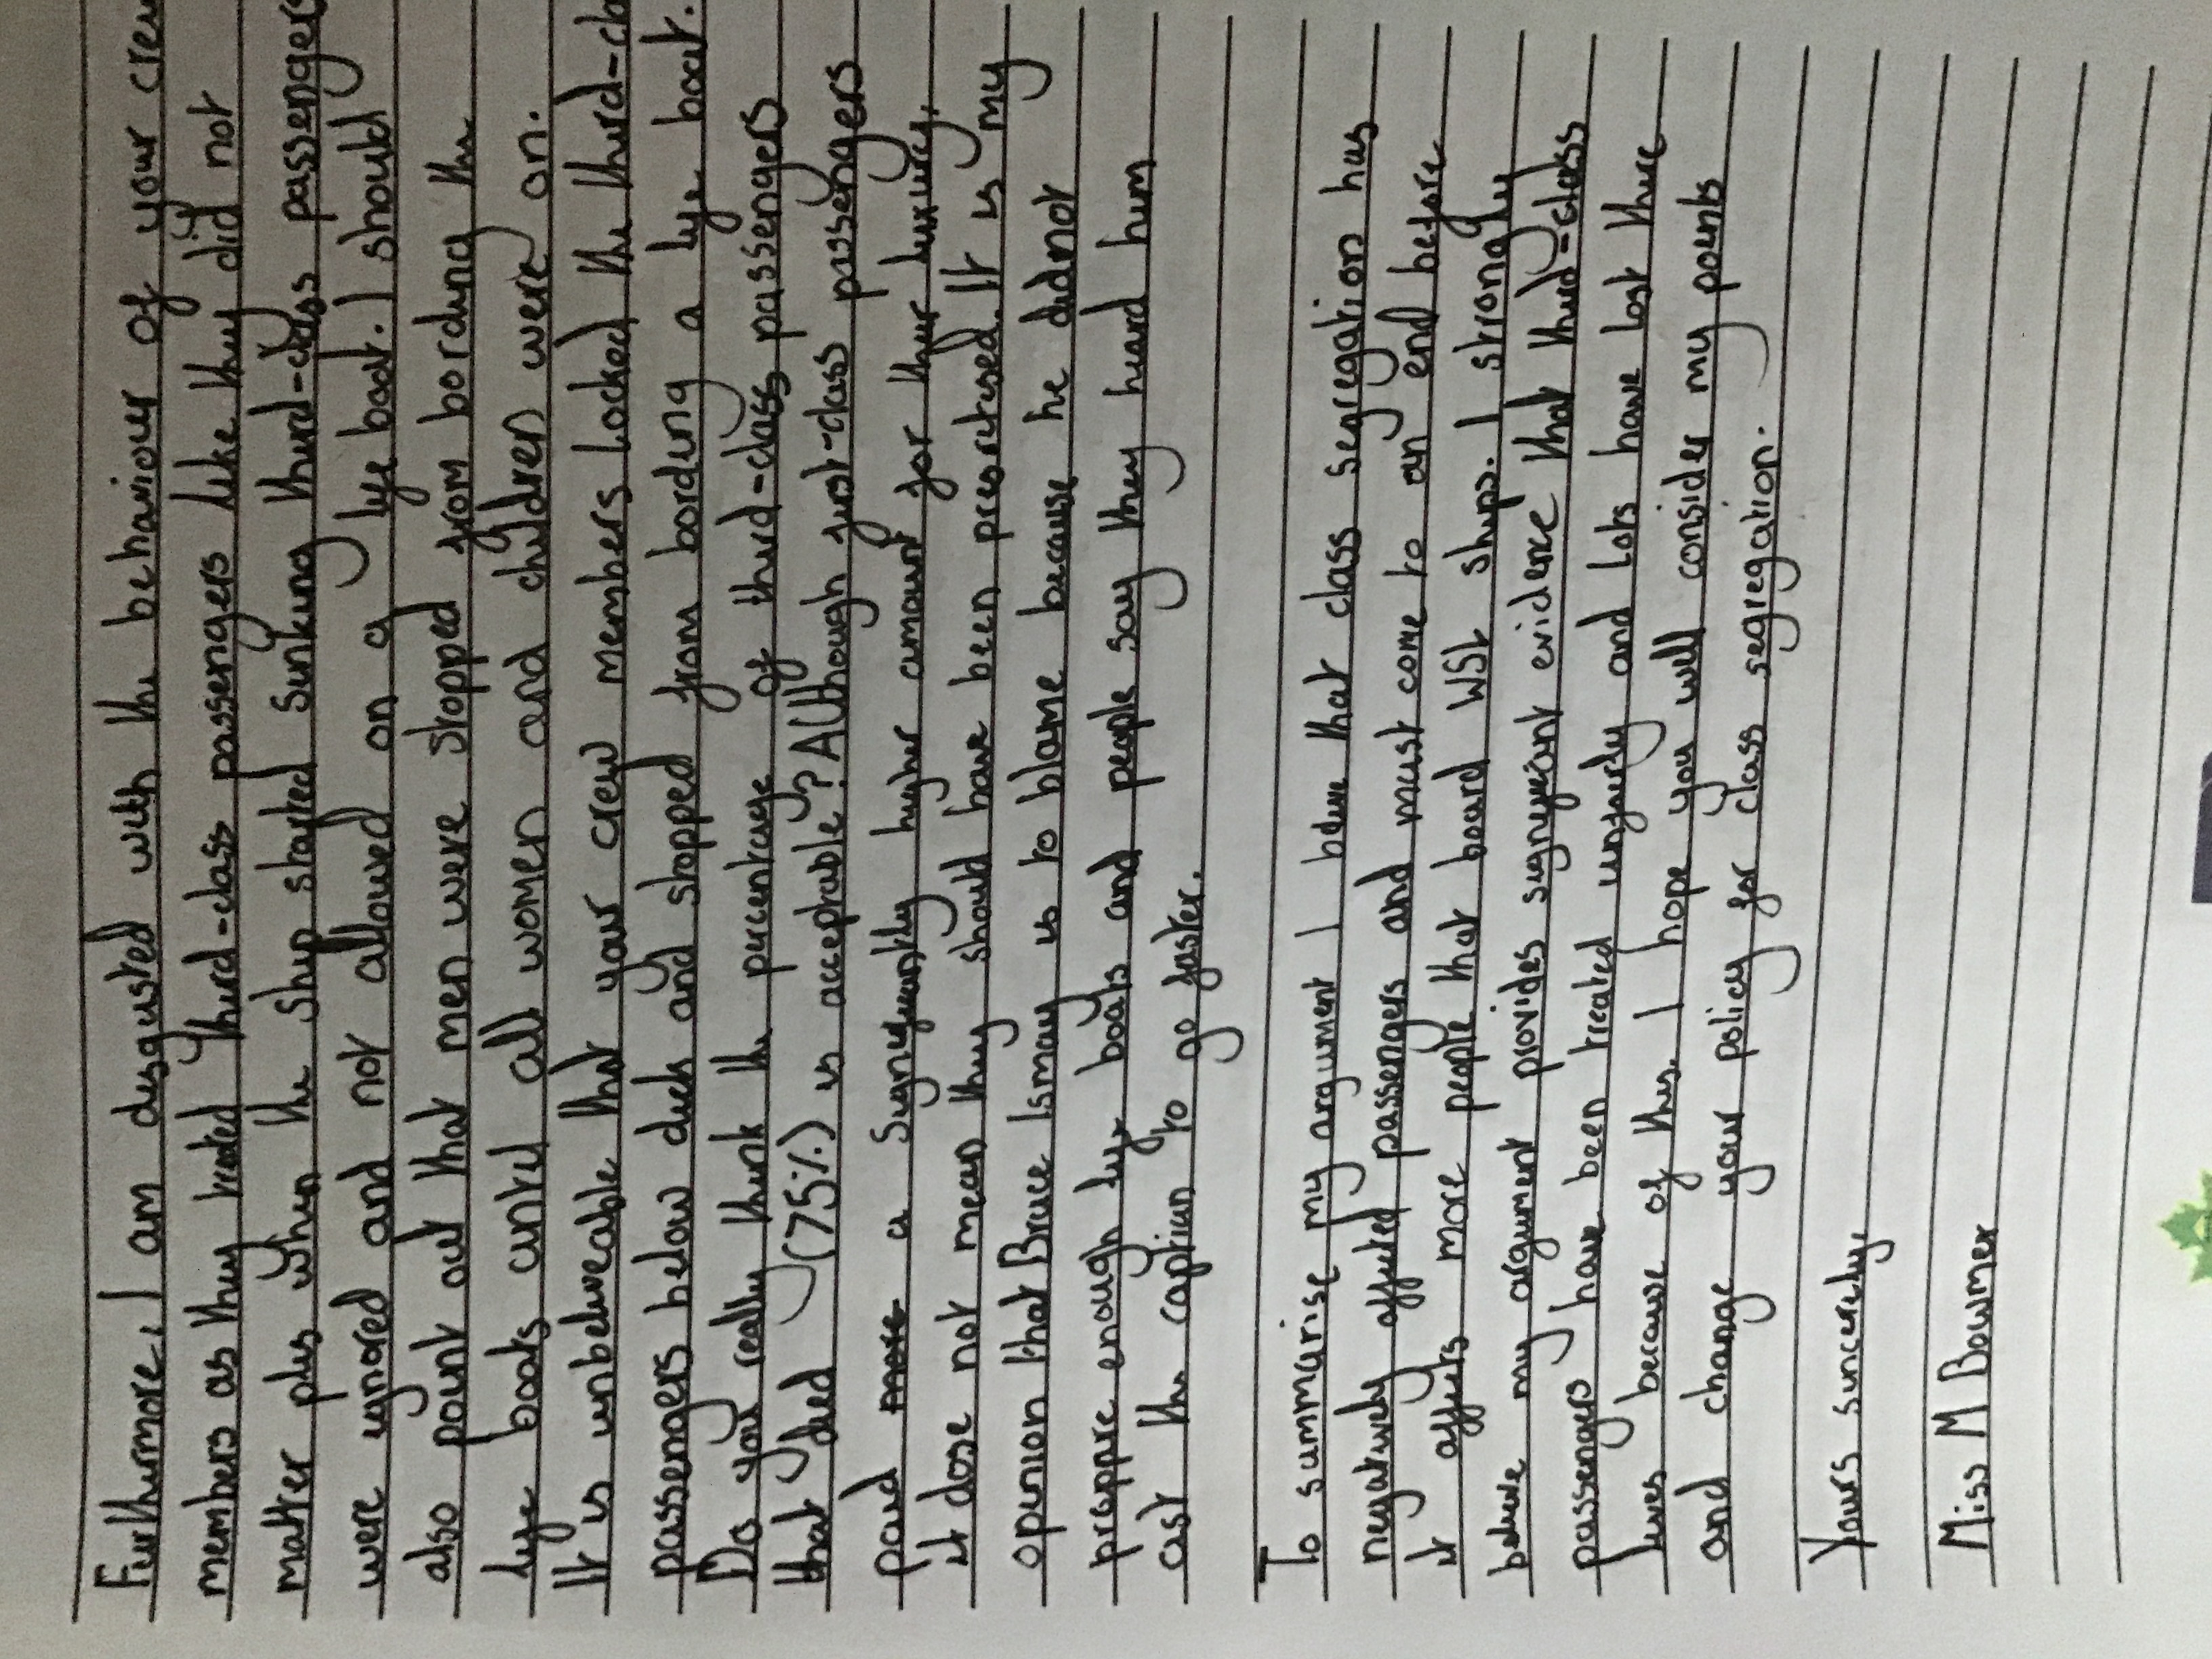 Furthermore, I am disgusted with the behaviour of your crew
members as they treated third-class passengers like they did not
matter plus when the ship started sinking third-class passengers
were ignored and not allowed on a life boat. I should
also point out that men were stopped from bording the
life boats until all women and children were on.
It is unbeliveable that your crew members locked the third-cla
passengers below deck and stopped from bording a life boat.
Do you really think the percentage of third-class passengers
that died (75%) is acceptable? Although first-class passengers
paid more a significantly higher amount for their luxury,
it dose not mean they should have been prioritised. It is my
opinion that Bruce Ismay is to blame because he didnot
preppre enough life boats and people say they heard him
ask the captian to go faster.
To summarise my argument I belive that class segregation has
negatively affected passengers and must come to an end before
it affects more people that board WSL ships. I strongly
belive my argument provides significant evidence that third-class
passengers have been treated unfairly and lots have lost there
lives because of this. I hope you will consider my points
and change your policy for class segregation.
Yours sincerely,
Miss M Bowmer